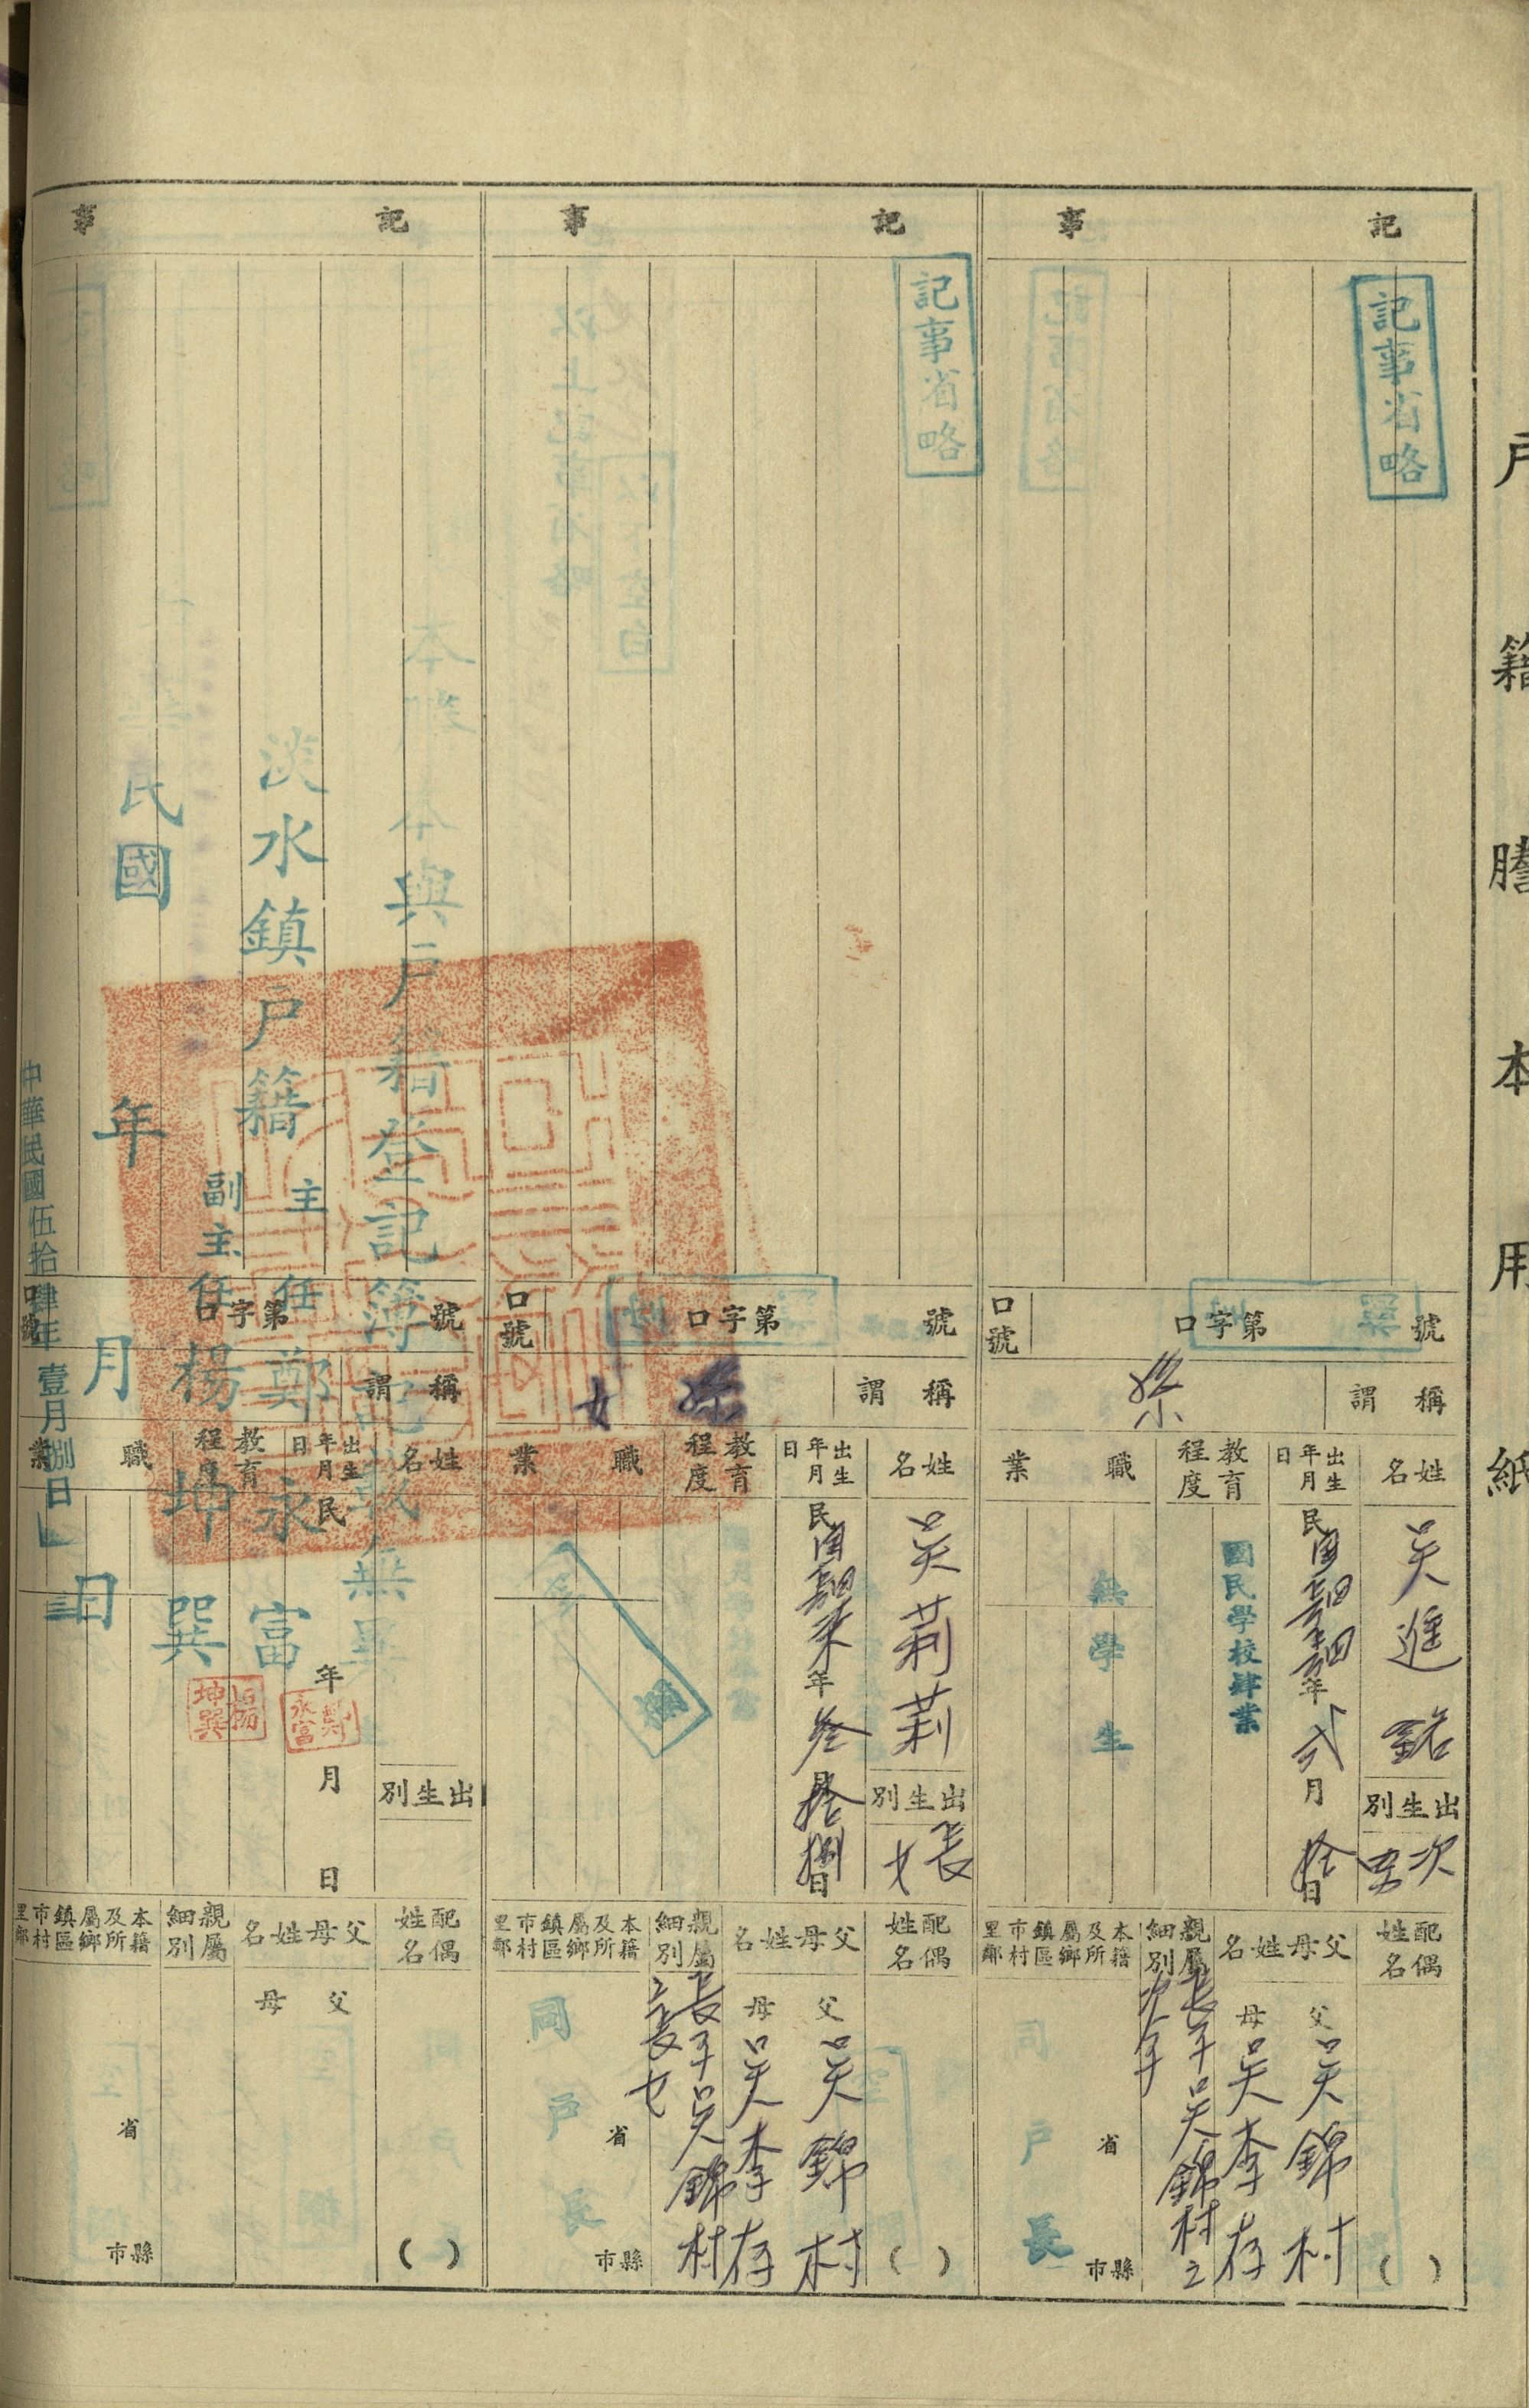 戶籍謄本用紙
記事
記事省略
號
第字口
口號
稱謂
孫
姓名
吳進銘
出生別
次男
出生年月日
民國
年
弍月
拾日
教育程度
國民學校肄業
職業
無
學生
配偶姓名
( )
父母姓名
父 吳錦村
母 吳李存
親屬細別
長子吳錦村之
次子
本籍及所屬鄉鎮區市村里鄰
同戶長
省
縣市
記事
記事省略
號
第字口
口號
稱謂
孫女
姓名
吳莉莉
出生別
長女
出生年月日
民國
年
叁月
拾捌日
教育程度
職業
配偶姓名
( )
父母姓名
父 吳錦村
母 吳李存
親屬細別
長子吳錦村
之長女
本籍及所屬鄉鎮區市村里鄰
同戶長
省
縣市
記事
本謄本與戶籍登記簿記載無異
淡水鎮戶籍
主任 鄭永富
副主任 楊坤巽
鄭永富
楊坤巽
民國 年 月 日
中華民國伍拾肆年壹月捌日
號
第字口
口號
稱謂
姓名
出生別
出生年月日
民
年
月
日
教育程度
職業
配偶姓名
( )
父母姓名
父
母
親屬細別
本籍及所屬鄉鎮區市村里鄰
省
縣市